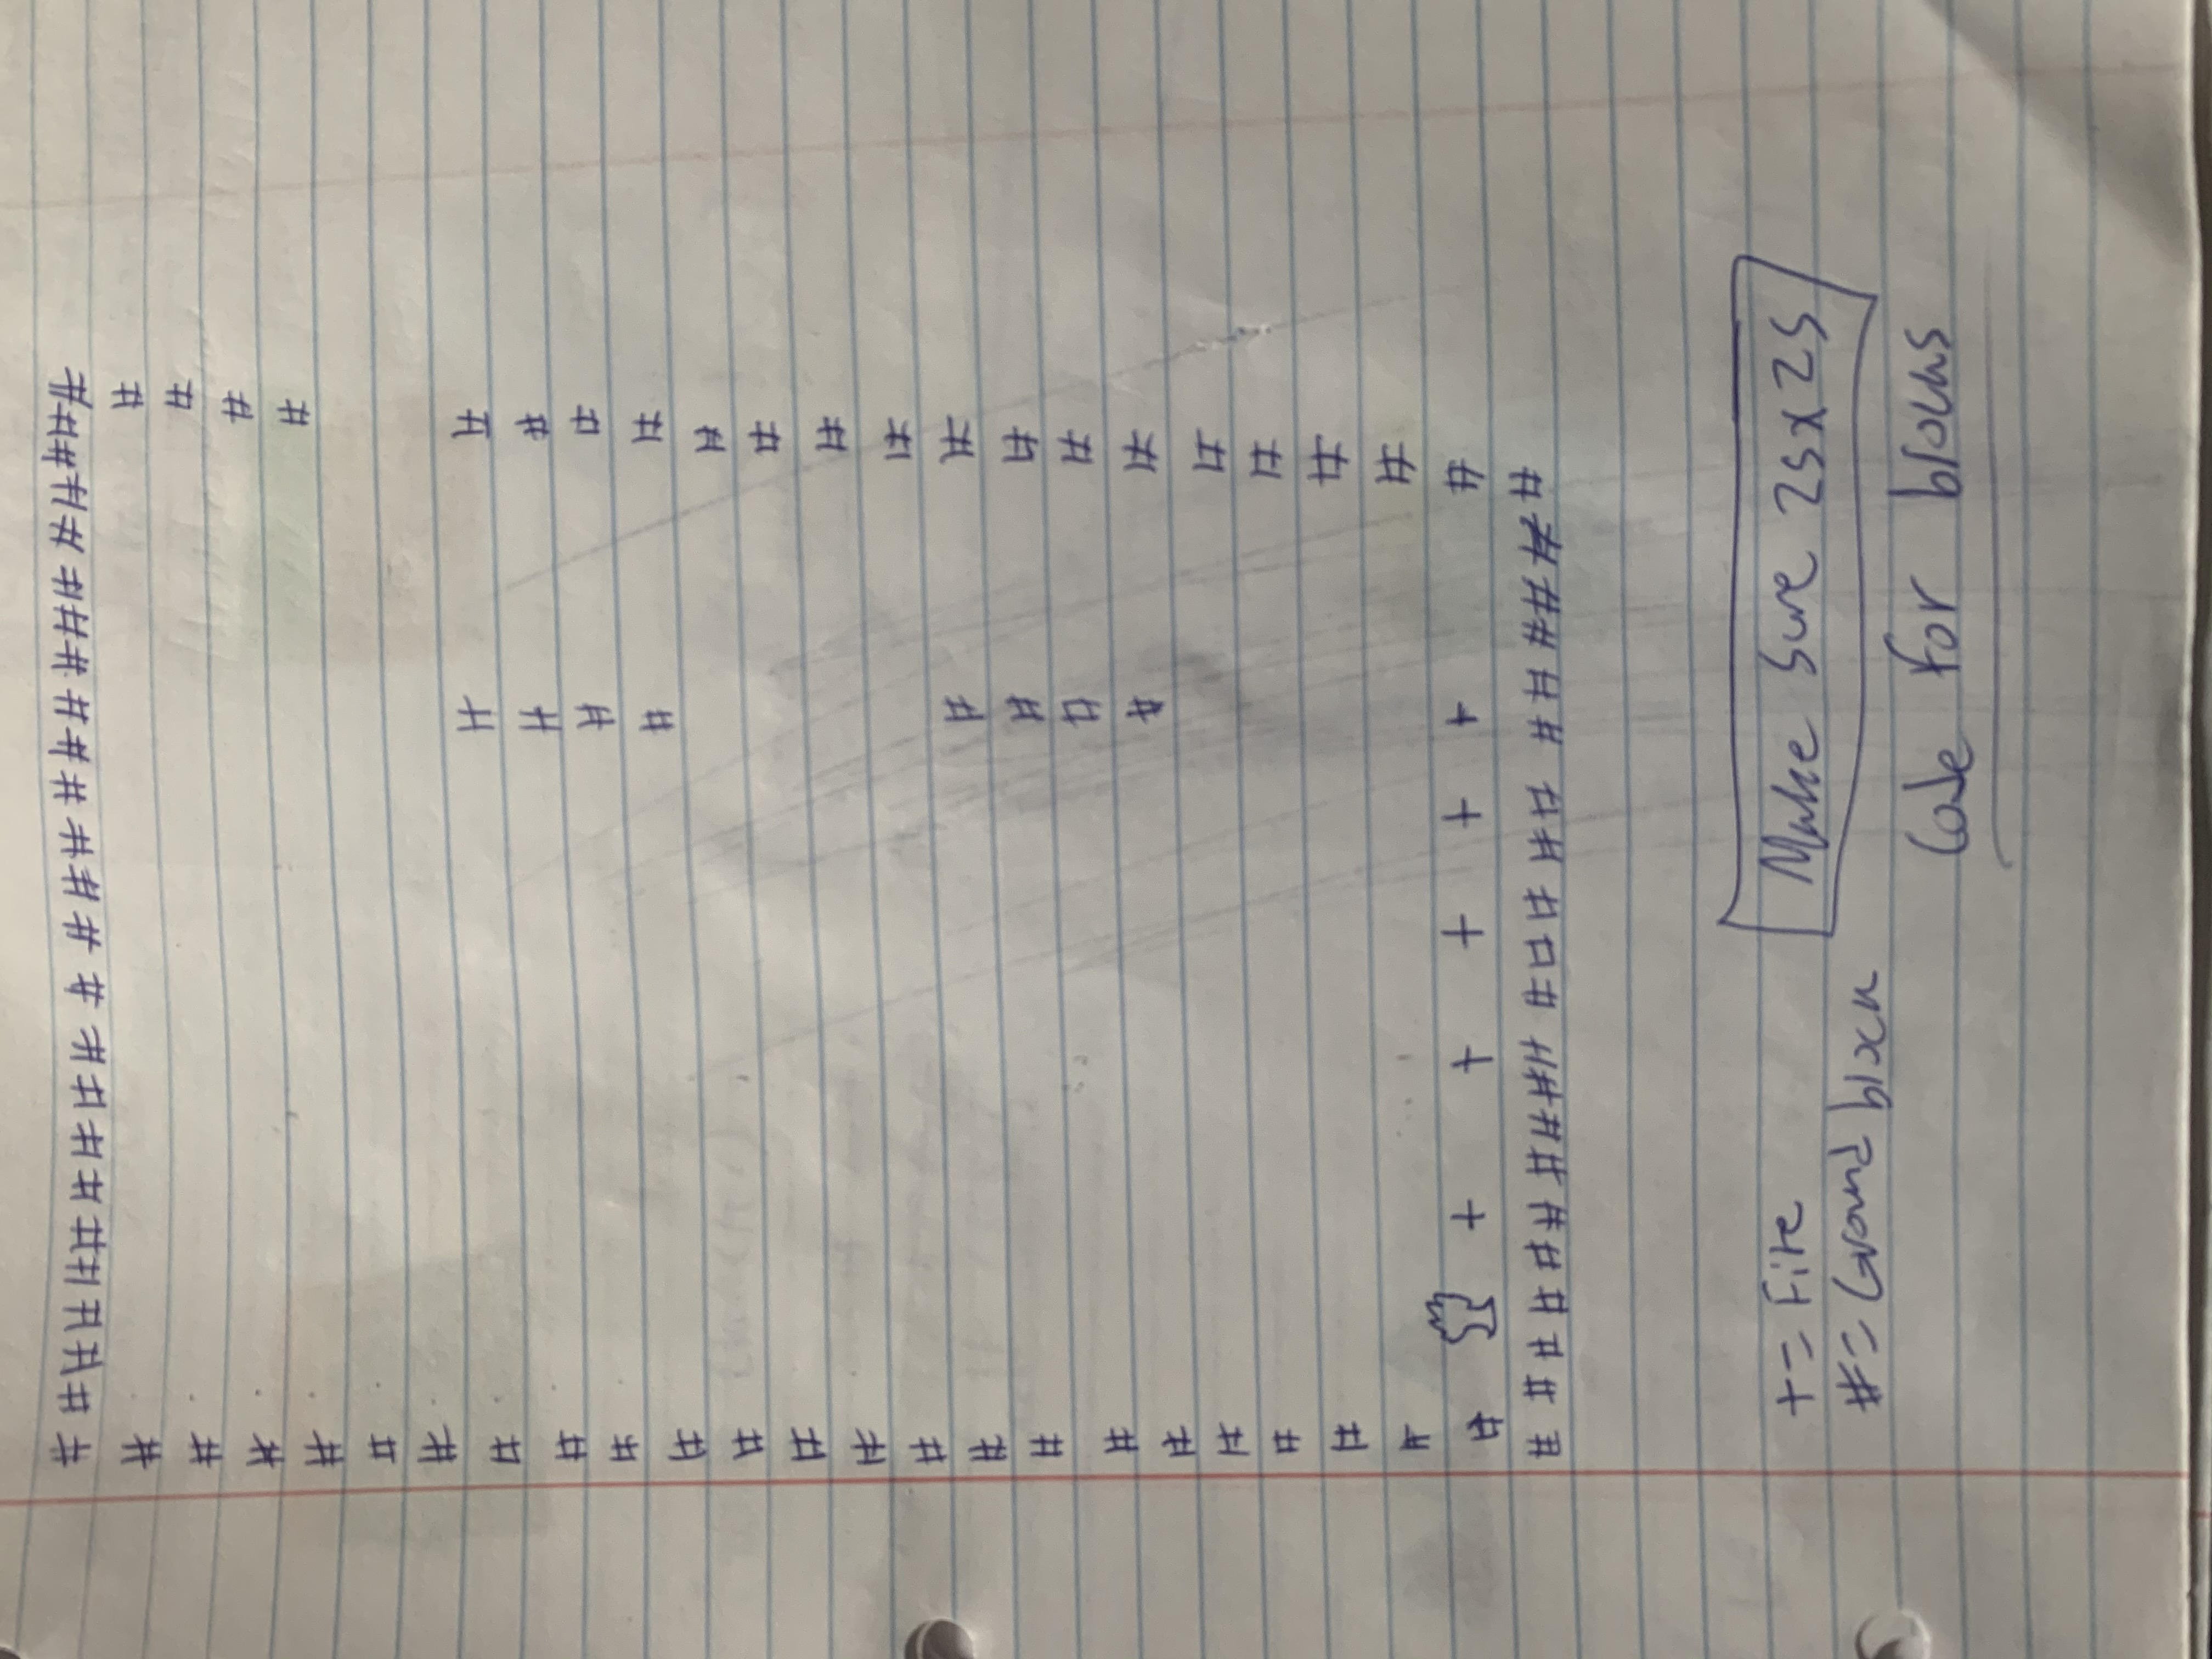 # # # # # # # # # # # # # # # # # # # # # # # # #
# #
# #
# #
# #
#
#
# # #
# # #
# # #
# # #
# #
# #
# #
# #
# # #
# # #
# # #
# # #
# #
# #
# #
# #
# + + + + + #
# # # # # # # # # # # # # # # # # # # # #
+ = Fire
# = Ground block
Make Sure 25x25
Code for blocks